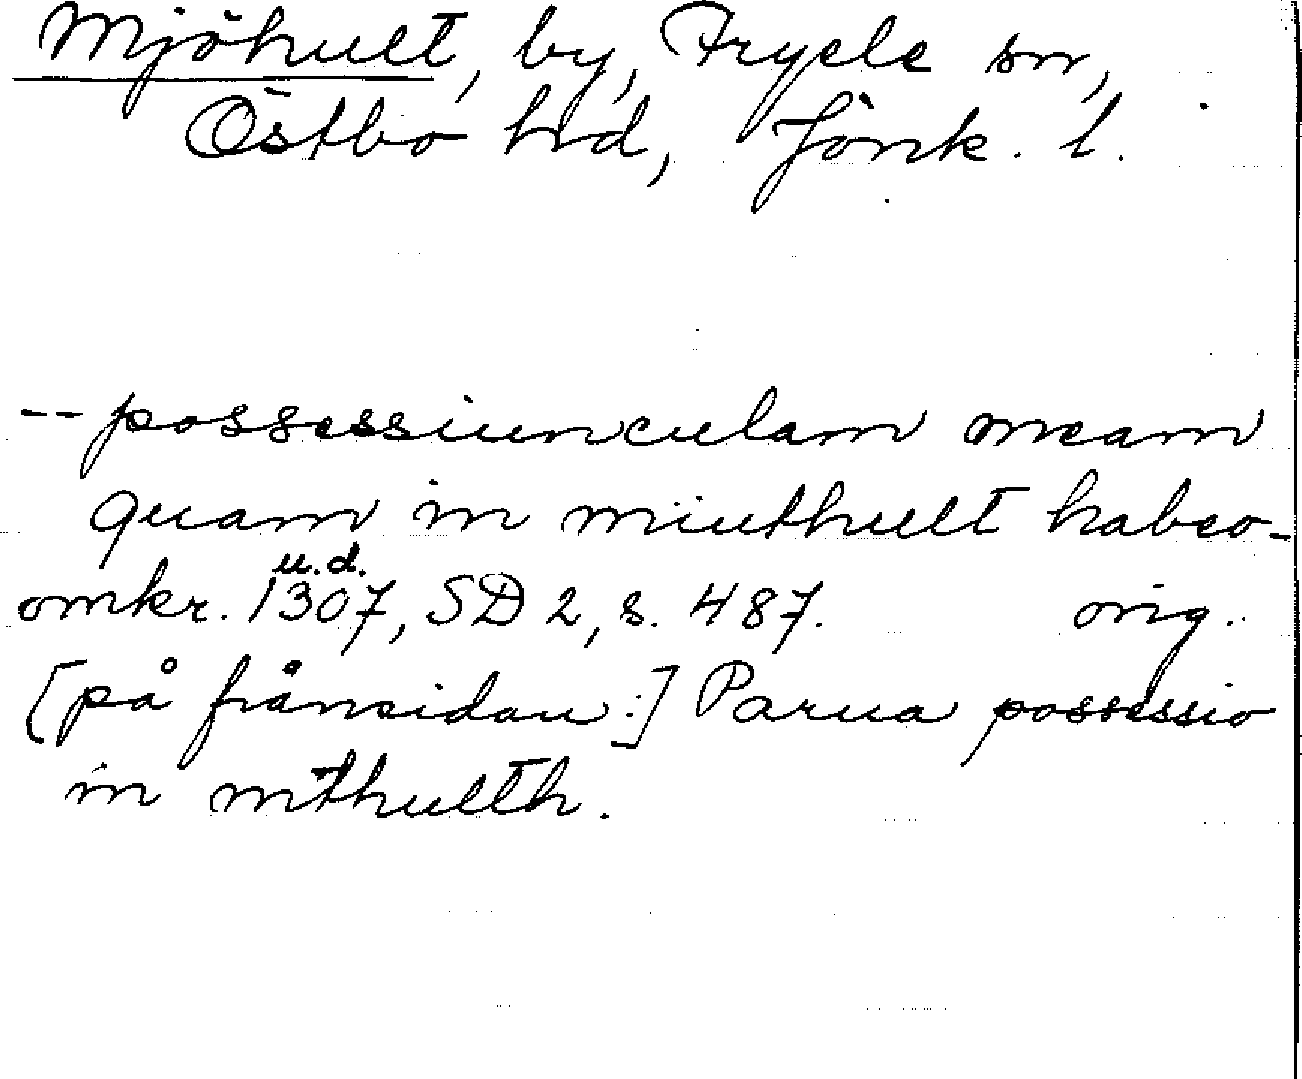 Mjöhult, by, Fryele sn,
Östbo hd, Jönk. l.
-- possessiunculam meam
quam in miuthult habeo-
u.d.
omkr. 1307, SD 2, s. 487. orig.
[på frånsidan:] Parua possessio
in mthulth.